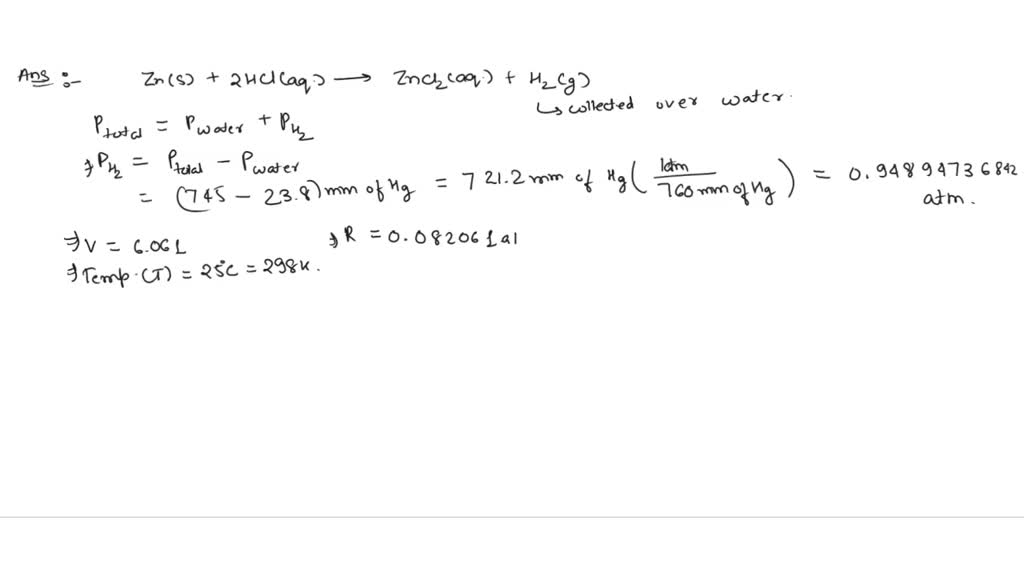 Ans :- Zn(s) + 2HCl(aq.) ⟶ ZnCl2(aq.) + H2(g)
↳ collected over water.
Ptotal = Pwater + PH2
⇒ PH2 = Ptotal − Pwater
= (745 − 23.8) mm of Hg = 721.2 mm of Hg (1atm / 760 mm of Hg) = 0.94894736842 atm.
⇒ V = 6.06L ⇒ R = 0.08206 Lal
⇒ Temp.(T) = 25°C = 298K.